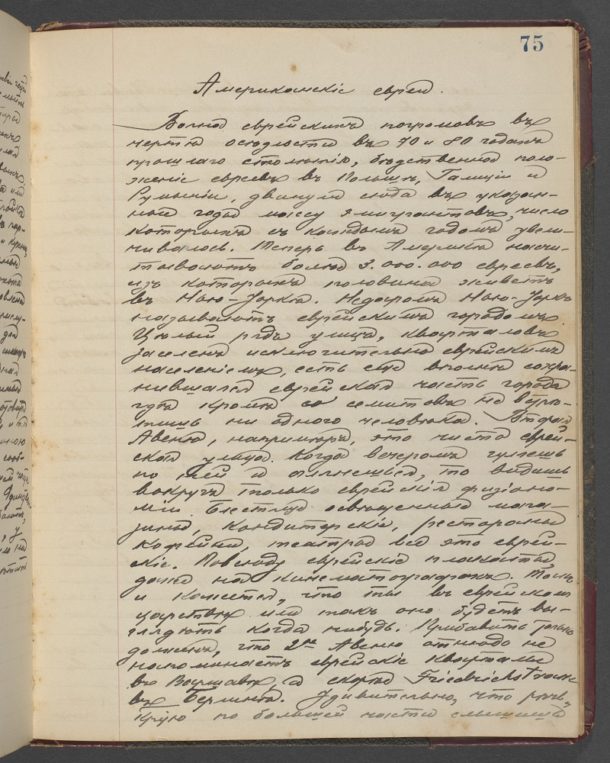 75
Американскіе евреи.
еврейскихъ погромовъ въ
чертѣ осѣдлости въ 70 и 80 годахъ
прошлаго столѣтія, бѣдственное поло-
женіе евреевъ въ Польшѣ, Галиціи и
Румыніи, двинули сюда въ указан-
ные годы массу эмигрантовъ, число
которыхъ съ каждымъ годомъ увели-
чивалось. Теперь въ Америкѣ насчи-
тываютъ болѣе 3.000.000 евреевъ,
изъ которыхъ половина живетъ
въ Нью-Іоркѣ. Недаромъ Нью-Іоркъ
называютъ еврейскимъ городомъ.
Цѣлый рядъ улицъ, кварталовъ
заселены исключительно еврейскимъ
населеніемъ, есть еще вполнѣ сохра-
нившаяся еврейская часть города
гдѣ кромѣ семитовъ не встрѣ-
тишь ни одного человѣка. Вторая
Авеню, напримѣръ, это чисто еврей-
ская улица. Когда вечеромъ гуляешь
по ней и оглянешься, то видишь
вокругъ только еврейскія физіоно-
міи. Блестяще освѣщенные мага-
зины, кондитерскіе, рестораны
кофейни театры все это еврей-
скіе. Повсюду еврейскіе плакаты,
даже на кинематографахъ. Такъ
и кажется, что ты въ еврейскомъ
царствѣ или такъ оно будетъ вы-
глядѣть когда нибудь. Прибавить только
долженъ, что 2ая Авеню отнюдь не
напоминаетъ еврейскіе кварталы
въ Варшавѣ, а скорѣе Friedrichstrasse
въ Берлинѣ. Удивительно, что
по большей части слышишь